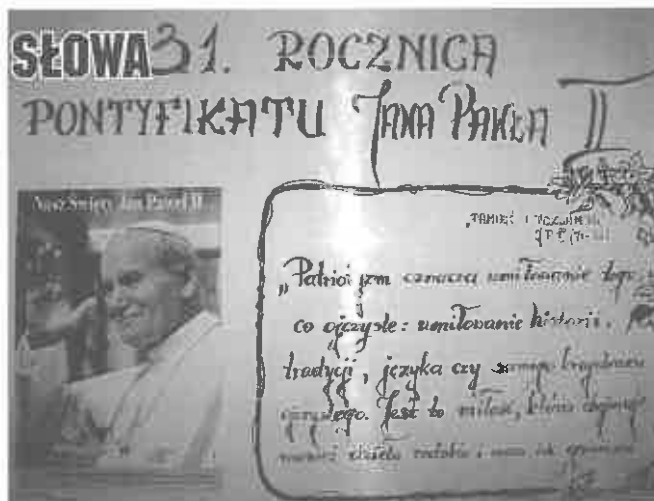 SŁOWA 31. ROCZNICA
PONTYFIKATU JANA PAWŁA II
Nasz Święty Jan Paweł II
„Patriotyzm oznacza umiłowanie tego,
co ojczyste: umiłowanie historii,
tradycji, języka czy samego krajobrazu
ojczystego. Jest to miłość, która obejmuje
również dzieła rodaków i